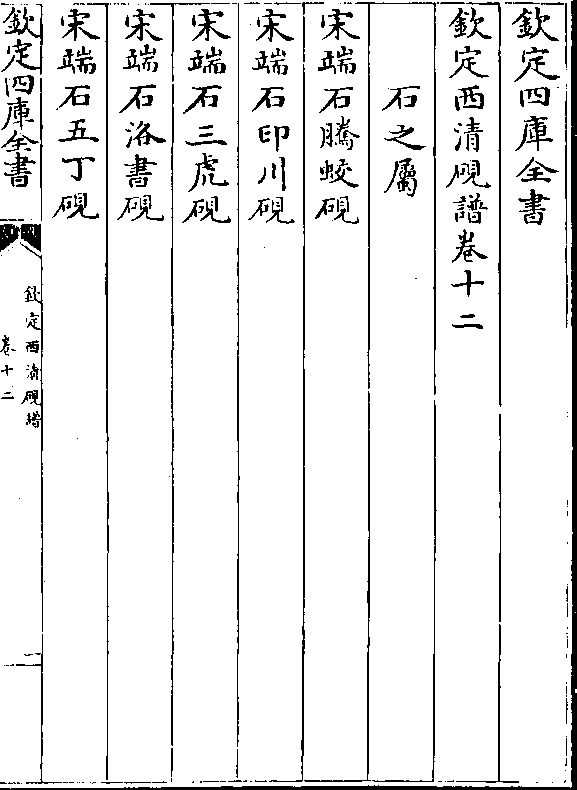 欽定四庫全書
欽定西清硯譜卷十二
石之屬
宋端石騰蛟硯
宋端石印川硯
宋端石三虎硯
宋端石洛書硯
宋端石五丁硯
欽定四庫全書
欽定西清硯譜
卷十二
一